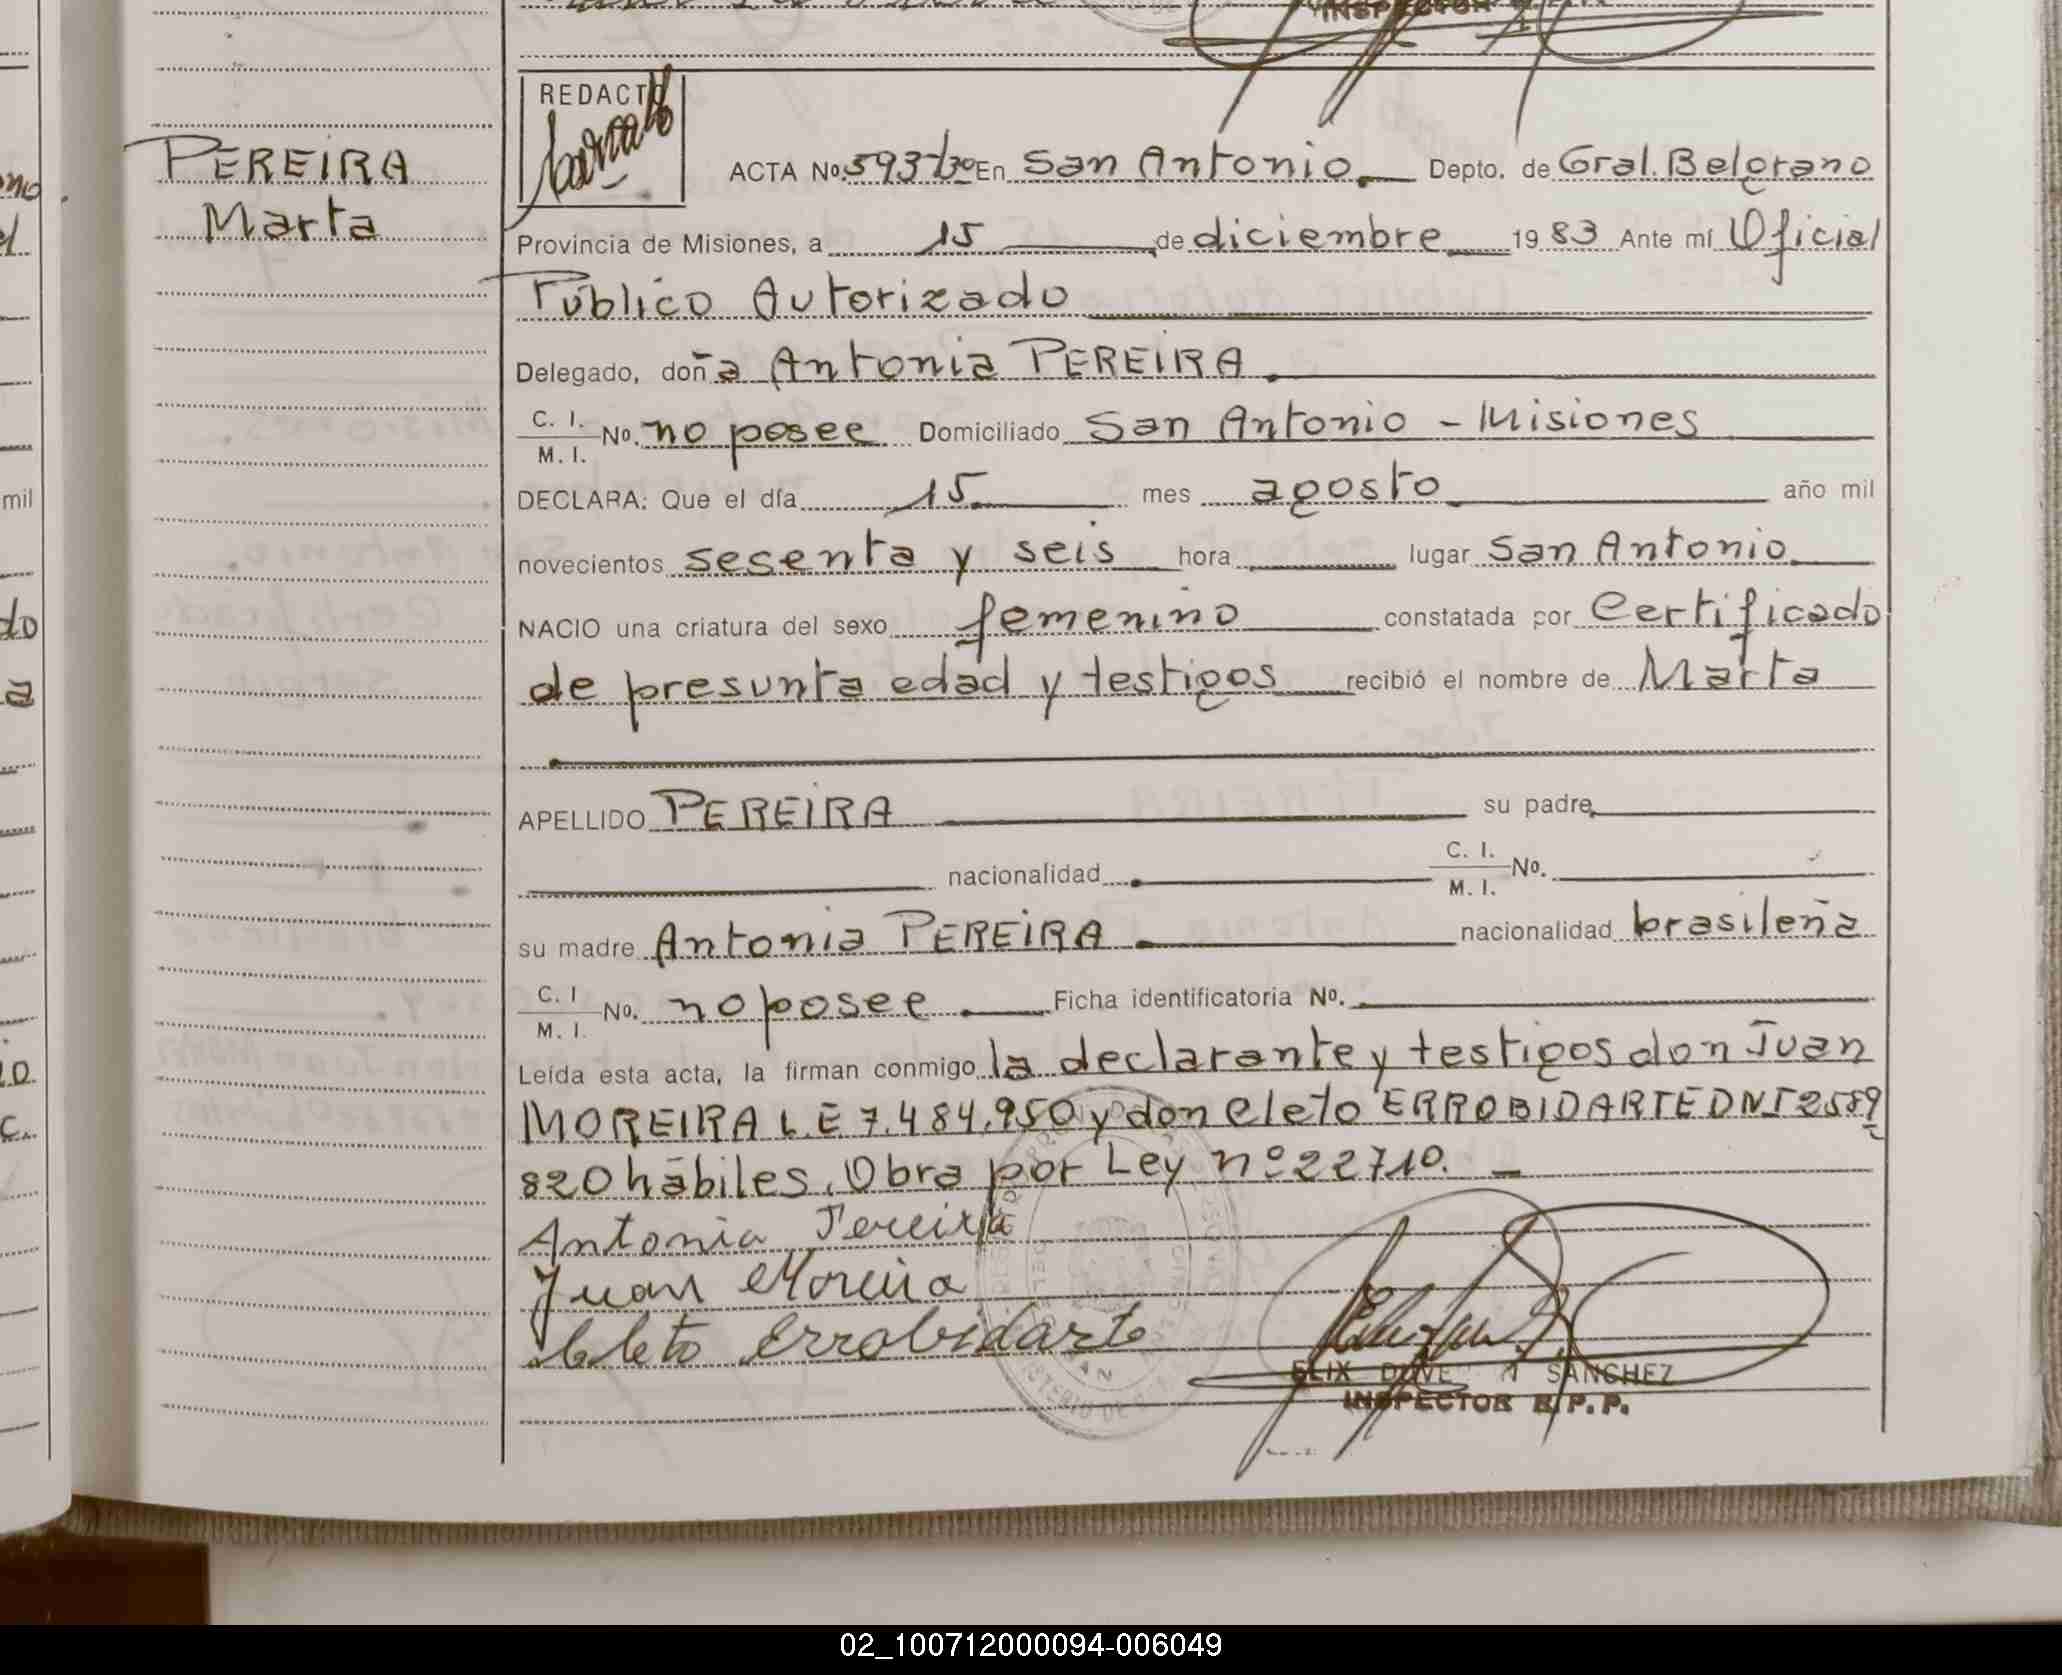 INSPECTOR
REDACTO
PEREIRA
Marta
ACTA No. 593 En San Antonio. Depto. de Gral. Belgrano
Provincia de Misiones, a 15 de diciembre 1983 Ante mí Oficial
Público Autorizado
Delegado, doña Antonia PEREIRA.
C. I. M. I. No. no posee Domiciliado San Antonio - Misiones
DECLARA: Que el día 15 mes agosto año mil
novecientos sesenta y seis hora lugar San Antonio.
NACIO una criatura del sexo femenino constatada por Certificado
de presunta edad y testigos recibió el nombre de Marta
APELLIDO PEREIRA su padre
nacionalidad C. I. M. I. No.
su madre Antonia PEREIRA nacionalidad brasileña
C. I M. I. No. no posee. Ficha identificatoria No.
Leída esta acta, la firman conmigo la declarante y testigos don Juan
MOREIRA L.E 7.484.950 y don Cleto ERROBIDARTE DNI 2589
820 hábiles. Obra por Ley nº 22710.
Antonia Pereira
Juan Moreira
Cleto Errobidarte
SANCHEZ
INSPECTOR R.P.P.
mil
02_100712000094-006049